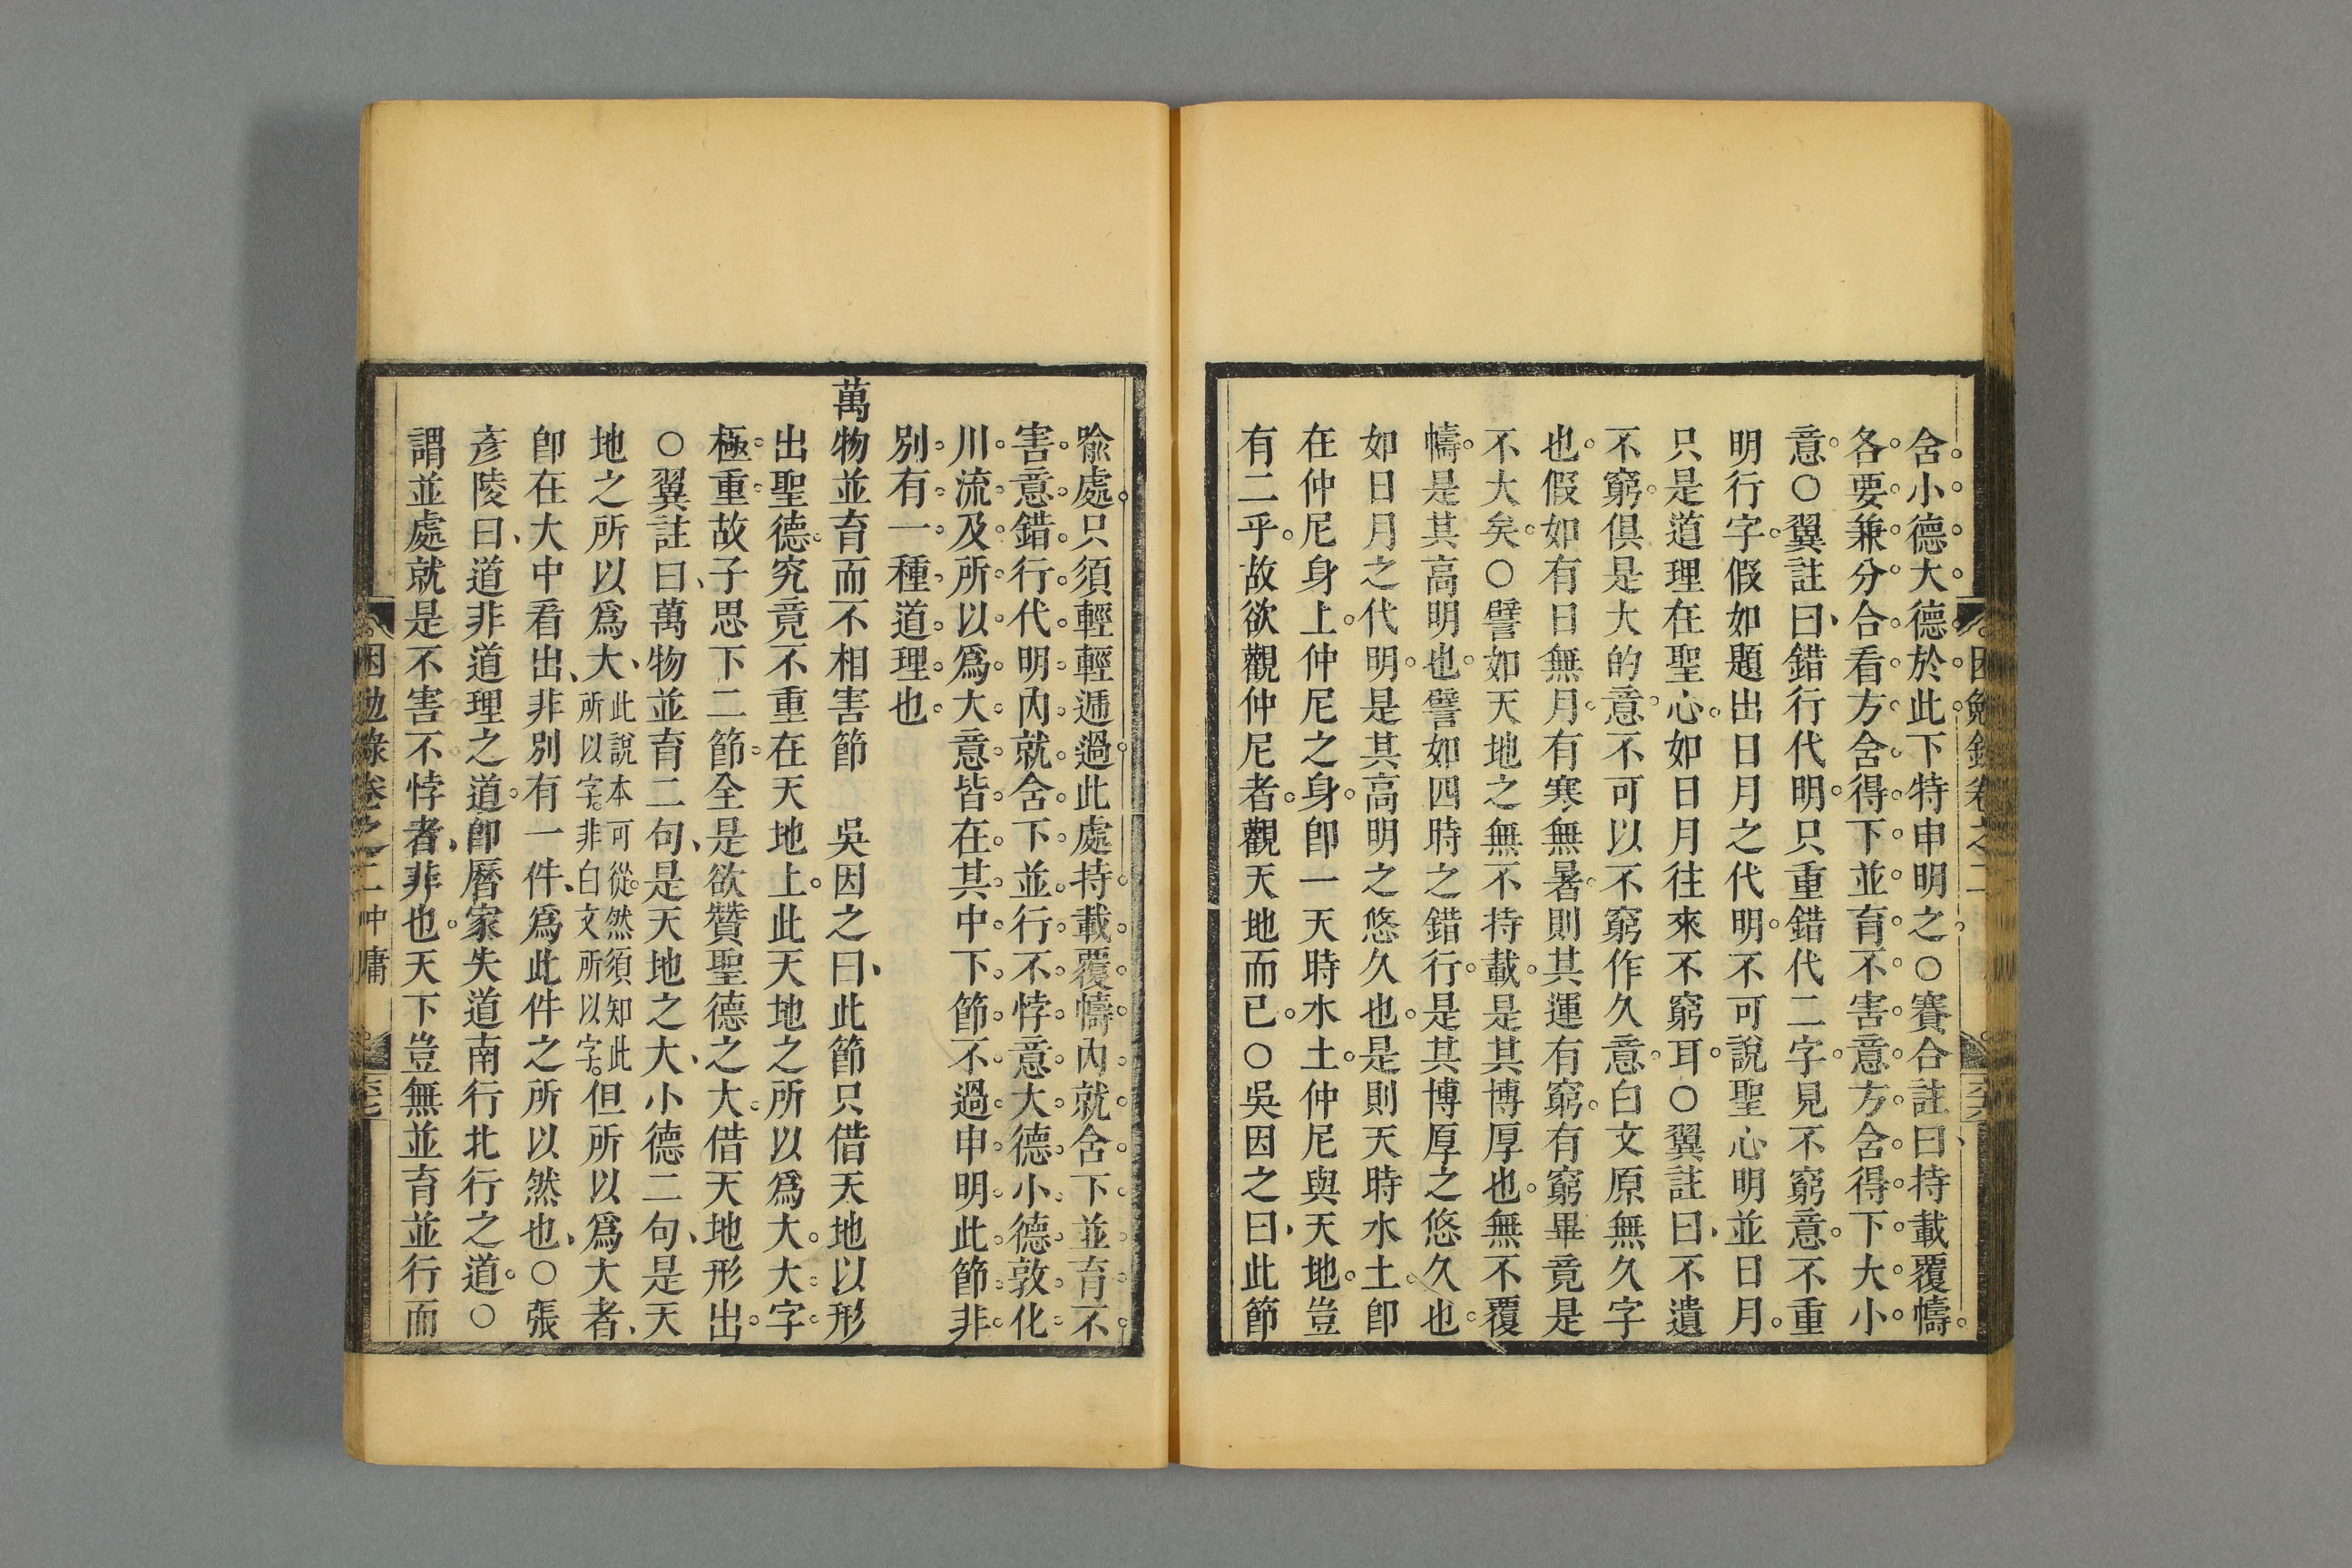 含小德大德於此下特申明之○賽合註曰持載覆幬
各要兼分合看方含得下並育不害意方含得下大小
意○翼註曰錯行代明只重錯代二字見不窮意不重
明行字假如題出日月之代明不可說聖心明並日月
只是道理在聖心如日月往來不窮耳○翼註曰不遺
不窮俱是大的意不可以不窮作久意白文原無久字
也假如有日無月有寒無暑則其運有窮有窮畢竟是
不大矣○譬如天地之無不持載是其博厚也無不覆
幬是其高明也譬如四時之錯行是其博厚之悠久也
如日月之代明是其高明之悠久也是則天時水土卽
在仲尼身上仲尼之身卽一天時水土仲尼與天地豈
有二乎故欲觀仲尼者觀天地而已○吳因之曰此節
喩處只須輕輕遞過此處持載覆幬內就含下並育不
害意錯行代明內就含下並行不悖意大德小德敦化
川流及所以爲大意皆在其中下節不過申明此節非
別有一種道理也
萬物並育而不相害節 吳因之曰此節只借天地以形
出聖德究竟不重在天地上此天地之所以爲大大字
極重故子思下二節全是欲贊聖德之大借天地形出
○翼註曰萬物並育二句是天地之大小德二句是天
地之所以爲大此說本可從然須知此所以字非白文所以字但所以爲大者
卽在大中看出非別有一件爲此件之所以然也○張
彥陵曰道非道理之道卽曆家失道南行北行之道○
謂並處就是不害不悖者非也天下豈無並育並行而
困勉錄卷之二 中庸